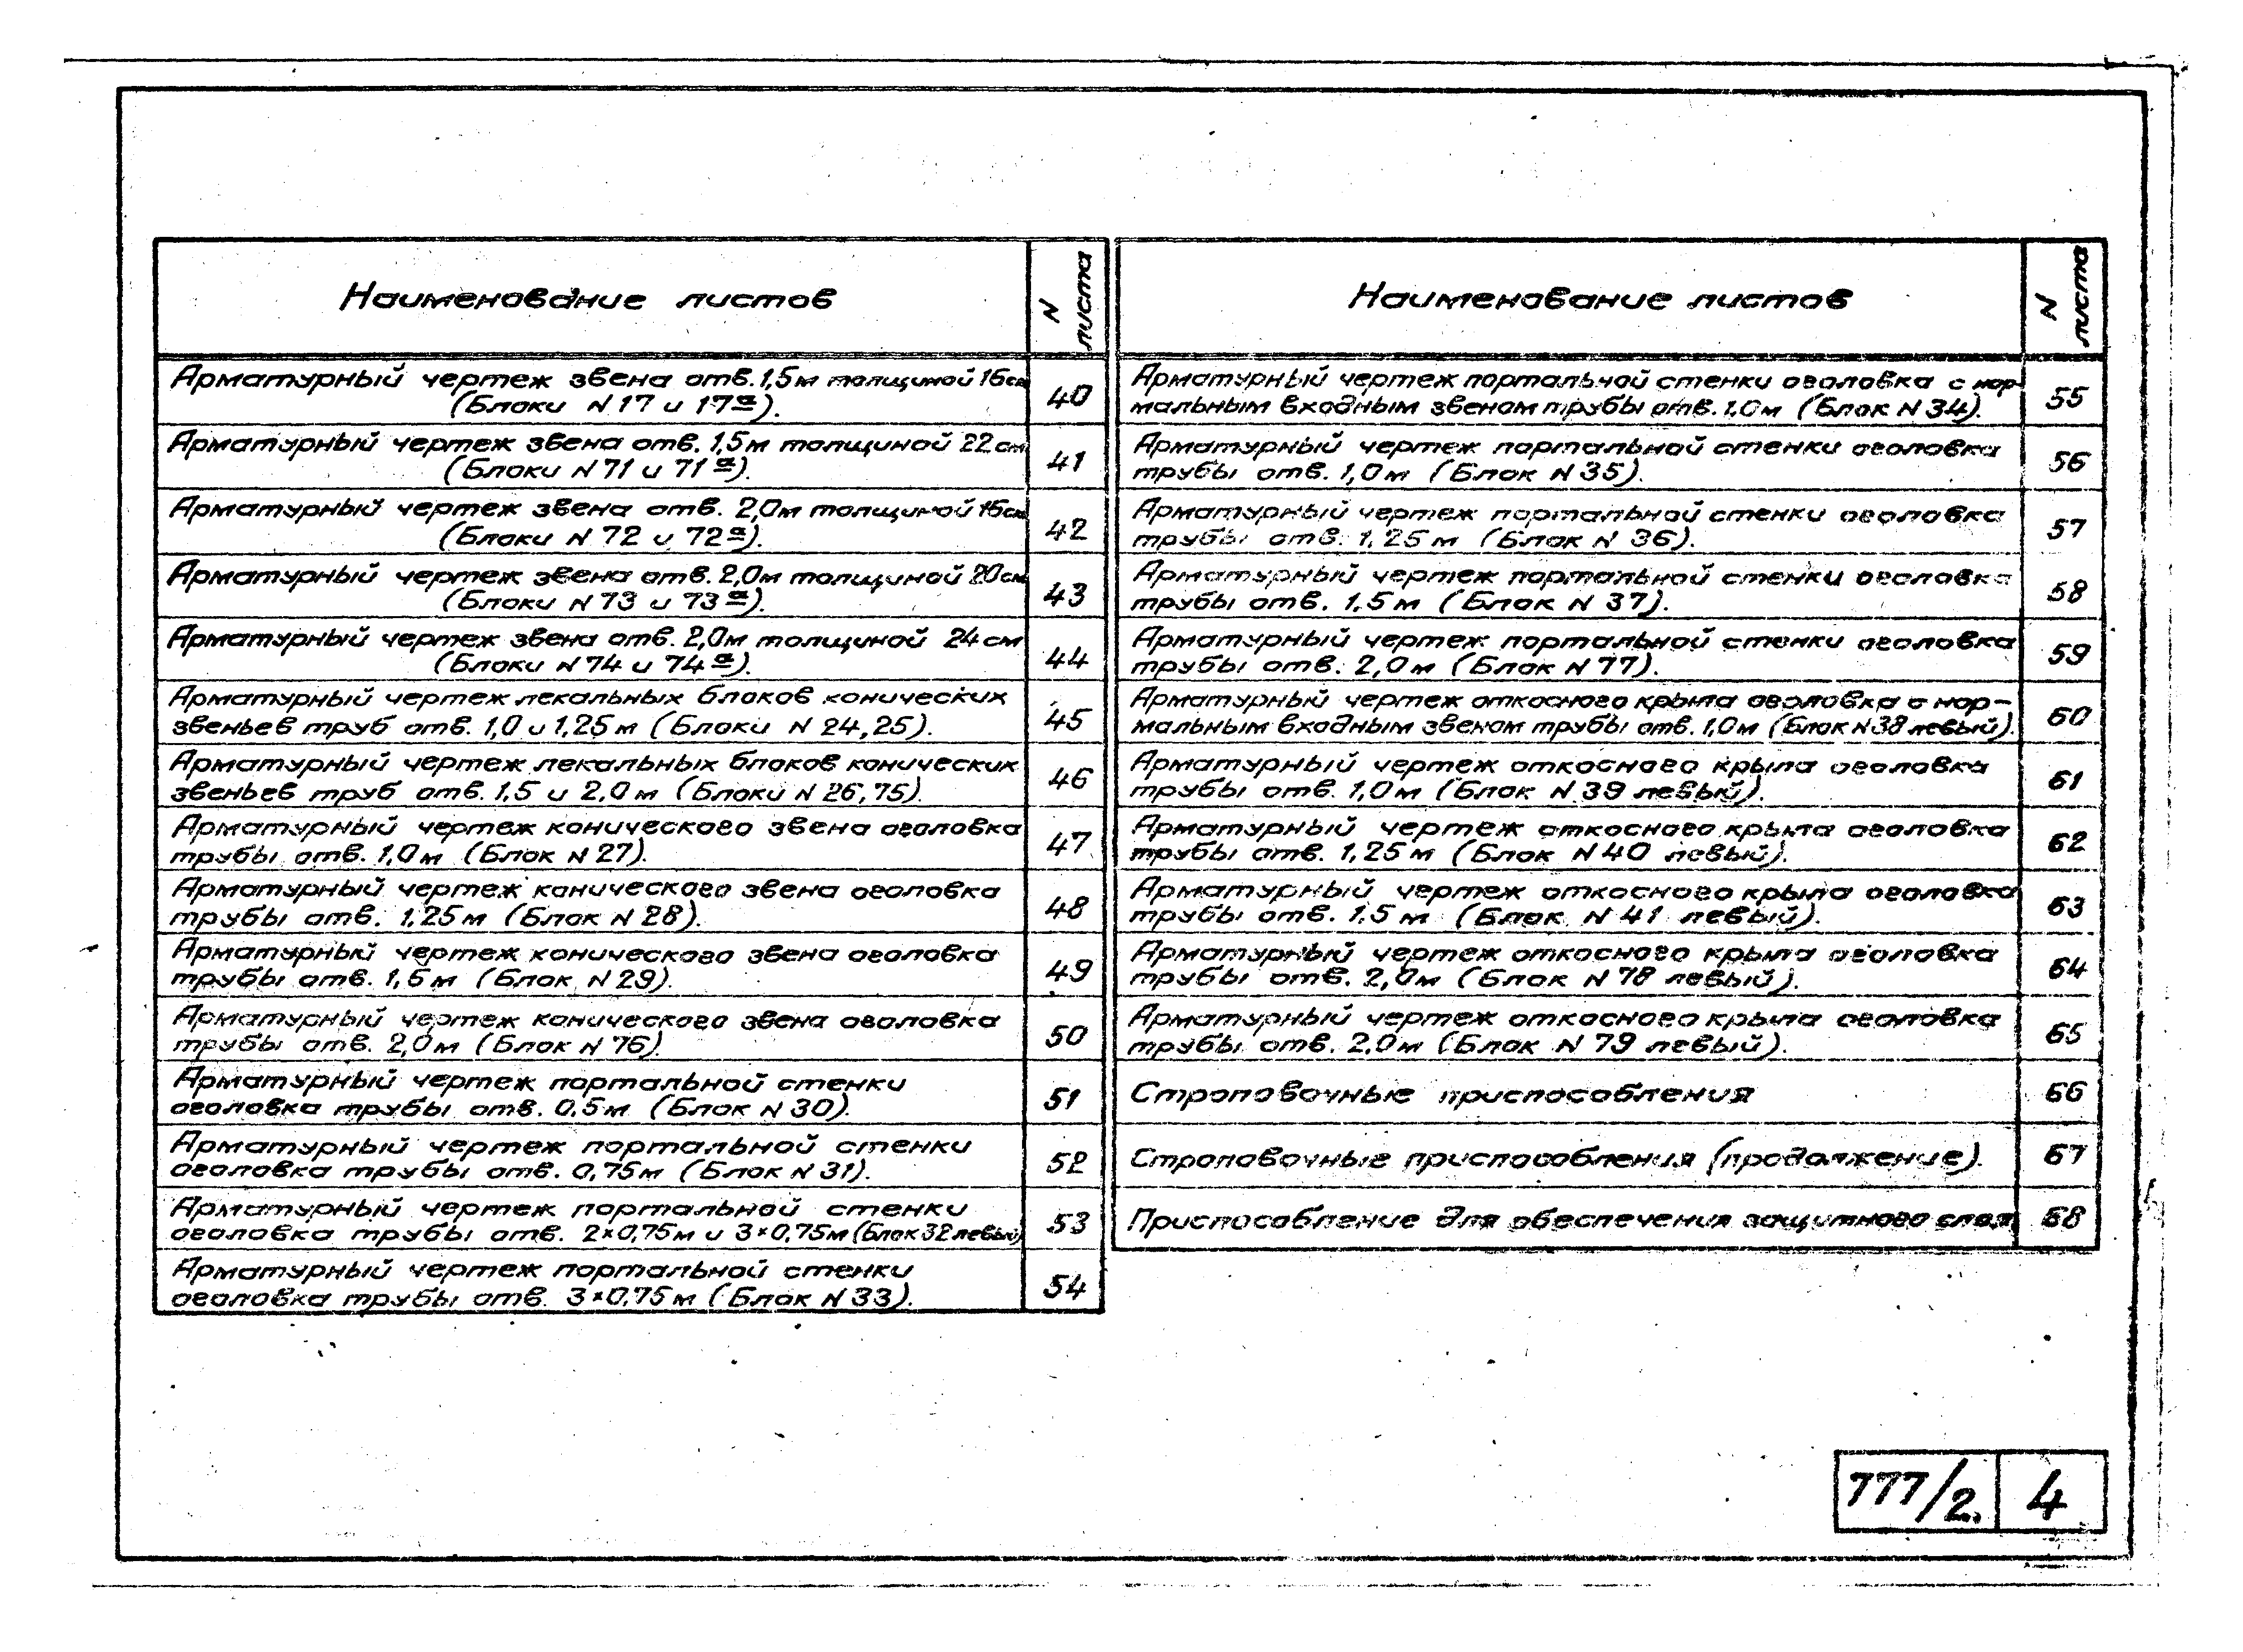 Наименование листов
N листа
Арматурный чертеж звена отв. 1,5м толщиной 16см
(Блоки N 17 и 17а).
40
Арматурный чертеж звена отв. 1,5м толщиной 22см
(Блоки N 71 и 71а).
41
Арматурный чертеж звена отв. 2,0м толщиной 16см
(Блоки N 72 и 72а).
42
Арматурный чертеж звена отв. 2,0м толщиной 20см
(Блоки N 73 и 73а).
43
Арматурный чертеж звена отв. 2,0м толщиной 24см
(Блоки N 74 и 74а).
44
Арматурный чертеж лекальных блоков конических
звеньев труб отв. 1,0 и 1,25м (Блоки N 24,25).
45
Арматурный чертеж лекальных блоков конических
звеньев труб отв. 1,5 и 2,0м (Блоки N 26,75).
46
Арматурный чертеж конического звена оголовка
трубы отв. 1,0м (Блок N 27).
47
Арматурный чертеж конического звена оголовка
трубы отв. 1,25м (Блок N 28).
48
Арматурный чертеж конического звена оголовка
трубы отв. 1,5м (Блок N 29).
49
Арматурный чертеж конического звена оголовка
трубы отв. 2,0м (Блок N 76).
50
Арматурный чертеж портальной стенки
оголовка трубы отв. 0,5м (Блок N 30).
51
Арматурный чертеж портальной стенки
оголовка трубы отв. 0,75м (Блок N 31).
52
Арматурный чертеж портальной стенки
оголовка трубы отв. 2×0,75м и 3×0,75м (Блок 32 левый)
53
Арматурный чертеж портальной стенки
оголовка трубы отв. 3×0,75м (Блок N 33).
54
Наименование листов
N листа
Арматурный чертеж портальной стенки оголовка с нор-
мальным входным звеном трубы отв. 1,0м (Блок N 34).
55
Арматурный чертеж портальной стенки оголовка
трубы отв. 1,0м (Блок N 35).
56
Арматурный чертеж портальной стенки оголовка
трубы отв. 1,25м (Блок N 36).
57
Арматурный чертеж портальной стенки оголовка
трубы отв. 1,5м (Блок N 37).
58
Арматурный чертеж портальной стенки оголовка
трубы отв. 2,0м (Блок N 77).
59
Арматурный чертеж откосного крыла оголовка с нор-
мальным входным звеном трубы отв. 1,0м (Блок N 38 левый).
60
Арматурный чертеж откосного крыла оголовка
трубы отв. 1,0м (Блок N 39 левый).
61
Арматурный чертеж откосного крыла оголовка
трубы отв. 1,25м (Блок N 40 левый).
62
Арматурный чертеж откосного крыла оголовка
трубы отв. 1,5м (Блок N 41 левый).
63
Арматурный чертеж откосного крыла оголовка
трубы отв. 2,0м (Блок N 78 левый).
64
Арматурный чертеж откосного крыла оголовка
трубы отв. 2,0м (Блок N 79 левый).
65
Строповочные приспособления
66
Строповочные приспособления (продолжение).
67
Приспособление для обеспечения защитного слоя
68
777/2. 4